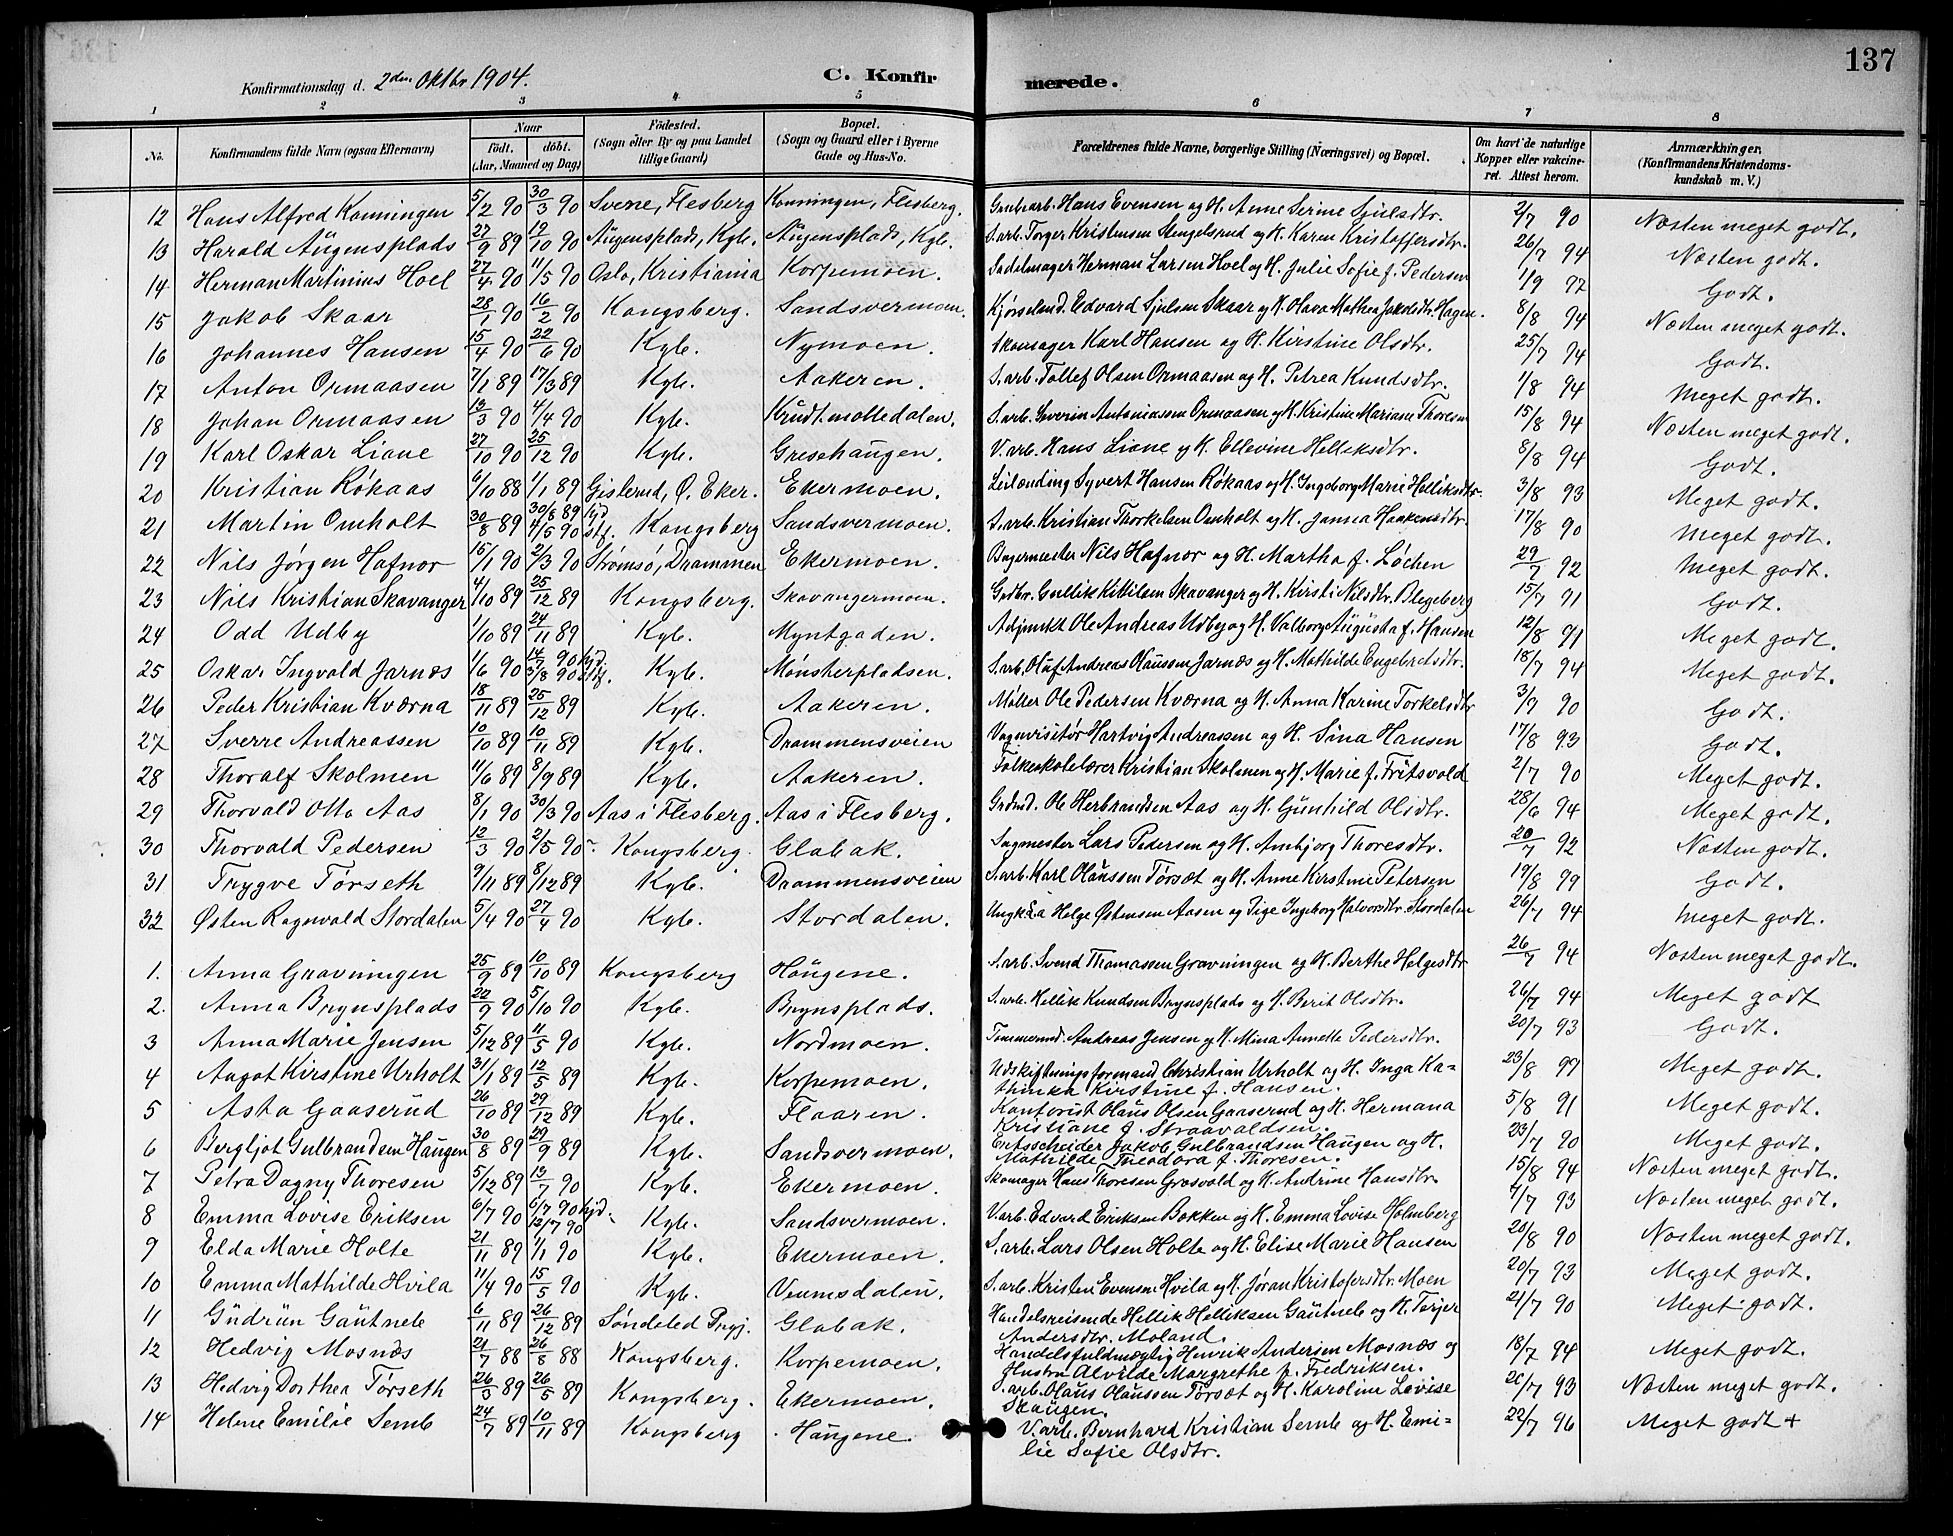 137
Konfirmationsdag d. 2den Oktbr 1904.
C. Konfirmerede.
1 2 3 4 5 6 7 8
No. Konfirmandens fulde Navn (ogsaa Efternavn) Naar født. døbt. (Aar, Maaned og Dag) Födested. (Sogn eller By og paa Landet tillige Gaard) Bopæl. (Sogn og Gaard eller i Byerne Gade og Hus-No. Forældrenes fulde Navne, borgerlige Stilling (Næringsvei) og Bopæl. Om havt de naturlige Kopper eller vakcineret. Attest herom. Anmærkninger. (Konfirmandens Kristendomskundskab m. V.)
12 Hans Alfred Konningen 5/2 90 30/3 90 Svene, Flesberg Konningen, Flesberg. Grubarb. Hans Evensen og H. Anne Serine Sjulsdtr. 2/7 90 Næsten meget godt.
13 Harald Augensplads 27/9 89 19/10 90 Augensplads, Kgb. Augensplads, Kgb. S.arb. Torger Kristensen Stengelsrud og H. Karen Kristoffersdtr. 26/7 94 Næsten godt.
14 Herman Martinius Hoel 27/4 90 11/5 90 Oslo, Kristiania Korpemoen. Sadelmager Herman Larsen Hoel og H. Julie Sofie f. Pedersen 1/9 97 Godt.
15 Jakob Skaar 28/1 90 16/2 90 Kongsberg. Sandsvermoen. Kjørselsmd. Edvard Sjulsen Skaar og H. Olava Mathea Jakobsdtr. Hagen. 8/8 94 Næsten meget godt.
16 Johannes Hansen 15/4 90 22/6 90 Kgb. Nymoen. Skomager Karl Hansen og H. Kirstine Olsdtr. 25/7 94 Godt.
17 Anton Ormaasen 7/1 89 17/3 89 Kgb. Aakeren. S.arb. Tollef Olsen Ormaasen og H. Petrea Knudsdtr. 1/8 94 Meget godt.
18 Johan Ormaasen 13/3 90 4/4 90 Kgb. Krudtmølledalen. S.arb. Severin Antoniussen Ormaasen og H. Kristine Mariane Thoresen 15/8 94 Næsten meget godt.
19 Karl Oskar Liane 27/10 90 25/12 90 Kgb. Gresehaugen. V.arb. Hans Liane og H. Ellevine Helleksdtr. 8/8 94 Godt.
20 Kristian Røkaas 6/10 88 1/1 89 Gislerud, Ø. Eker. Ekermoen. Leilænding Syvert Hansen Røkaas og H. Ingeborg Marie Helliksdtr. 3/8 93 Meget godt.
21 Martin Omholt 30/8 89 30/8 89 hjd 4/5 90 stf. Kongsberg Sandsvermoen. S.arb. Kristian Thorkelsen Omholt og H. Janna Haakensdtr. 17/8 90 Meget godt.
22 Nils Jørgen Hafnor 15/1 90 2/3 90 Strømsø, Drammen Ekermoen. Bagermester Nils Hafnor og H. Martha f. Løchen 29/7 92 Meget godt.
23 Nils Kristian Skavanger 4/10 89 25/12 89 Kongsberg. Skavangermoen. Grdbr. Gullik Kittilsen Skavanger og H. Kirsti Nilsdtr. Blegeberg 15/7 91 Godt.
24 Odd Udby 1/10 89 24/11 89 Kgb. Myntgaden. Adjunkt Ole Andreas Udby og H. Valborg Augusta f. Hansen 12/8 91 Meget godt.
25 Oskar Ingvald Jarnæs 1/6 90 14/7 90 hjd 3/8 90 stf. Kgb. Mønsterpladsen. S.arb. Oluf Andreas Olaussen Jarnæs og H. Mathilde Engebretsdtr. 18/7 94 Meget godt.
26 Peder Kristian Kværna 18/11 89 25/12 89 Kgb. Aakeren. Møller Ole Pedersen Kværna og H. Anna Karine Torkelsdtr 3/7 90 Godt.
27 Sverre Andreassen 10/10 89 10/11 89 Kgb. Drammensveien Vognvisitør Hartvig Andreassen og H. Sina Hansen 17/8 93 Godt.
28 Thoralf Skolmen 11/6 89 8/9 89 Kgb. Aakeren. Folkeskolelærer Kristian Skolmen og H. Marie f. Fritsvold 2/7 90 Meget godt.
29 Thorvald Otto Aas 8/1 90 30/3 90 Aas i Flesberg. Aas i Flesberg. Grdmd. Ole Herbrandsen Aas og H. Gunhild Olsdtr. 28/6 94 Meget godt.
30 Thorvald Pedersen 12/3 90 2/5 90 Kongsberg. Glabak. Sagmester Lars Pedersen og H. Anbjørg Thoresdtr. 20/7 92 Næsten godt.
31 Trygve Tørseth 9/11 89 8/12 89 Kgb. Drammensveien S.arb. Karl Olaussen Tørsæt og H. Anne Kirstine Petersen 19/8 99 Godt.
32 Østen Ragnvald Stordalen 5/4 90 27/4 90 Kgb. Stordalen. Ungk. Helge Østensen Aasen og Pige Ingeborg Halvorsdtr. Stordalen 26/7 94 Meget godt.
1. Anna Gravningen 25/9 89 10/10 89 Kongsberg Haugene. S.arb. Svend Thomassen Gravningen og H. Berthe Helgesdtr 26/7 94 Næsten meget godt.
2. Anna Brynsplads 22/9 90 5/10 90 Kgb. Brynsplads. S.arb. Hellik Knudsen Brynsplads og H. Berit Olsdtr. 26/7 94 Meget godt
3 Anna Marie Jensen 5/12 89 11/5 90 Kgb. Nordmoen. Tømmermd. Andreas Jensen og H. Mina Annette Pedersdtr. 20/7 93 Godt.
4 Aagot Kirstine Urholt 31/1 89 12/5 89 Kgb. Korpemoen. Udskiftningsformand Christian Urholt og H. Inga Ka-
thinka Kirstine f. Hansen. 23/8 99 Meget godt.
5 Asta Gaaserud 26/10 89 29/12 89 Kgb. Flaaren. Kontorist Olaus Olsen Gaaserud og H. Hermana
Kristiane f. Straavaldsen. 5/8 91 Meget godt.
6 Bergljot Gulbrandsen Haugen 30/8 89 29/9 89 Kgb. Sandsvermoen. Ertsscheider Jakob Gulbrandsen Haugen og H.
Mathilde Theodora f. Thoresen. 23/7 90 Meget godt.
7 Petra Dagny Thoresen 5/12 89 13/7 90 Kgb. Ekermoen. Skomager Hans Thoresen Grosvold og H. Andrine Hansdtr. 15/8 94 Næsten meget godt.
8 Emma Lovise Eriksen 6/7 90 6/7 90 hjd. 12/7 90 Kgb. Sandsvermoen. V.arb. Edvard Eriksen Bakken og H. Emma Lovise Holmberg 7/7 93 Næsten meget godt.
9 Elda Marie Holte 21/11 89 1/1 90 Kgb. Ekermoen. S.arb. Lars Olsen Holte og H. Elise Marie Hansen 20/8 90 Næsten meget godt.
10 Emma Mathilde Hvila 11/4 90 15/5 90 Kgb. Veumsdalen. S.arb. Kristen Evensen Hvila og H. Jøran Kristofersdtr. Moen 20/7 93 Meget godt.
11 Gudrun Gautneb 6/11 89 26/12 89 Søndeled Prgj. Glabak. Handelsreisende Hellik Helliksen Gautneb og H. Torjer
Andersdtr. Moland. 21/7 90 Meget godt.
12 Hedvig Mosnæs 21/7 88 26/8 88 Kongsberg. Korpemoen. Handelsfuldmægtig Henrik Andersen Mosnæs og
Hustru Alvilde Margrethe f. Fredriksen. 18/7 94 Meget godt.
13 Hedvig Dorthea Tørseth 26/3 89 26/5 89 Kongsberg. Ekermoen. S.arb. Olaus Olaussen Tørsæt og H. Karoline Lovise
Skaugen. 20/7 93 Næsten meget godt.
14 Helene Emilie Semb 24/7 89 10/11 89 Kongsberg Haugene. V.arb. Bernhard Kristian Semb og H. Emi-
lie Sofie Olsdtr. 22/7 96 Meget godt +